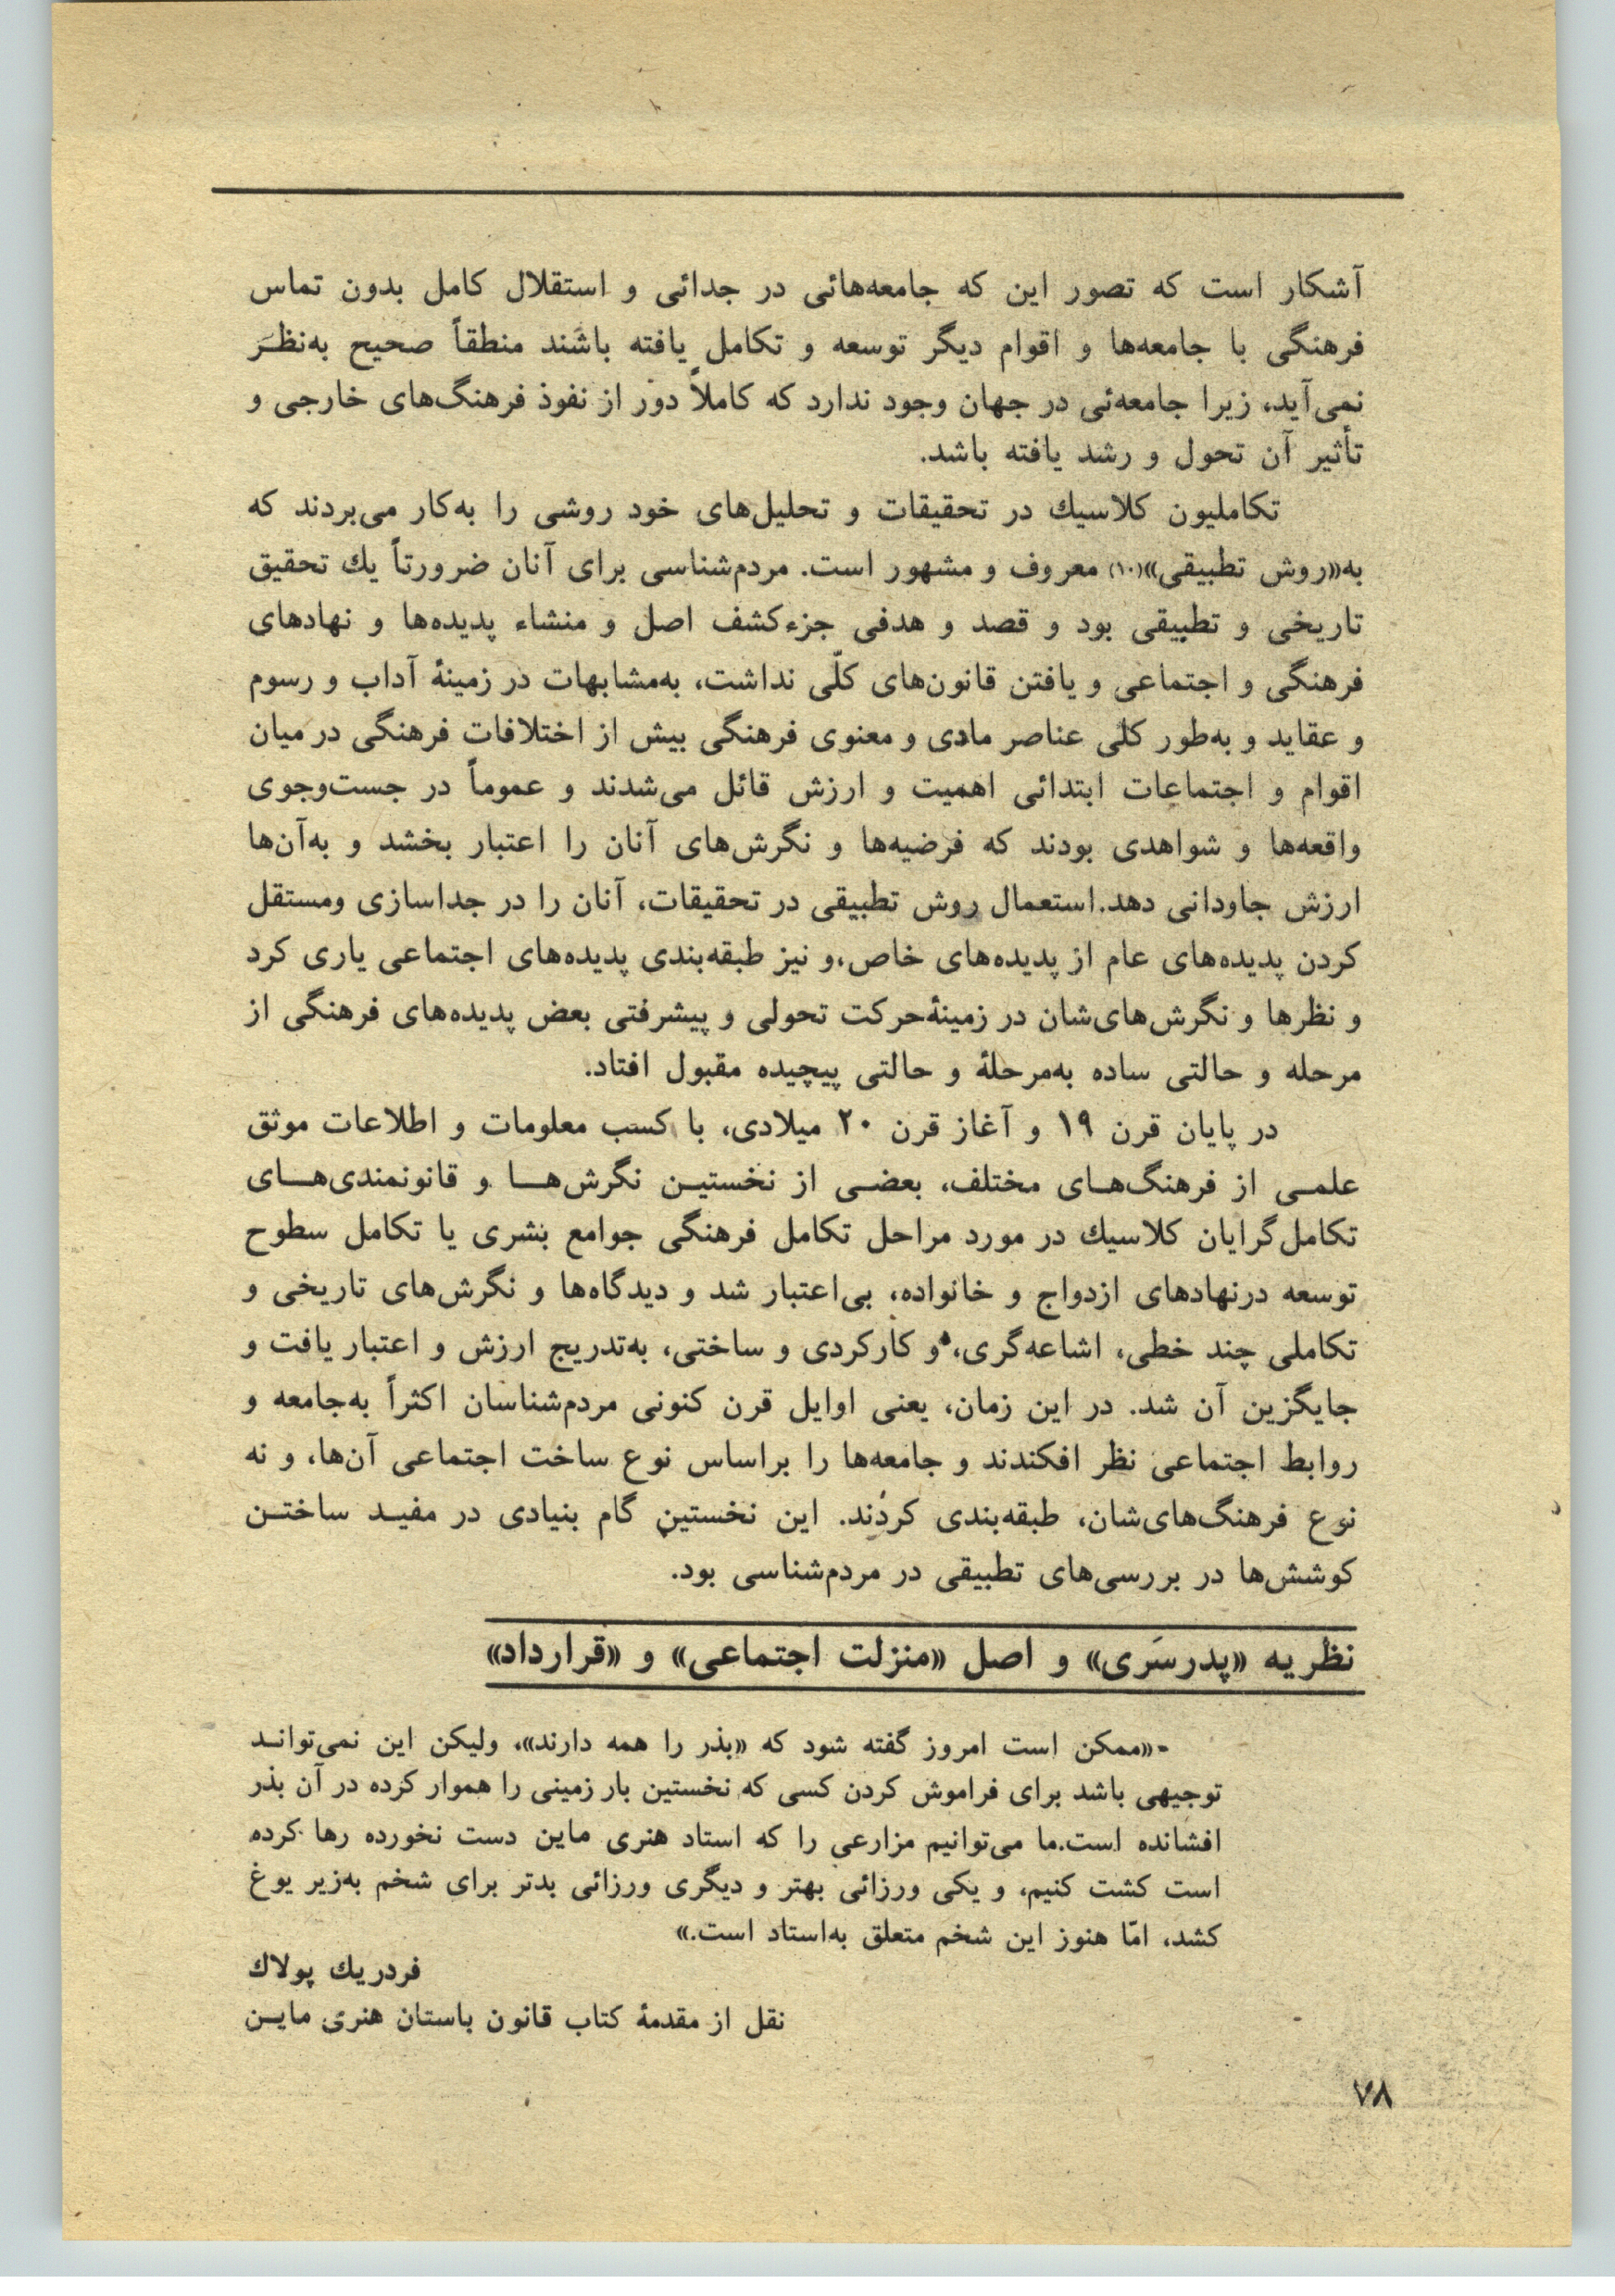 آشکار است که تصور این که جامعه‌هائی در جدائی و استقلال کامل بدون تماس
فرهنگی با جامعه‌ها و اقوام دیگر توسعه و تکامل یافته باشند منطقاً صحیح به‌نظـر
نمی‌آید، زیرا جامعه‌ئی در جهان وجود ندارد که کاملاً دور از نفوذ فرهنگ‌های خارجی و
تأثیر آن تحول و رشد یافته باشد.
تکاملیون کلاسیك در تحقیقات و تحلیل‌های خود روشی را به‌کار می‌بردند که
به«روش تطبیقی»(۱۰) معروف و مشهور است. مردم‌شناسی برای آنان ضرورتاً یك تحقیق
تاریخی و تطبیقی بود و قصد و هدفی جزء کشف اصل و منشاء پدیده‌ها و نهادهای
فرهنگی و اجتماعی و یافتن قانون‌های کلّی نداشت، به‌مشابهات در زمینهٔ آداب و رسوم
و عقاید و به‌طور کلی عناصر مادی و معنوی فرهنگی بیش از اختلافات فرهنگی در میان
اقوام و اجتماعات ابتدائی اهمیت و ارزش قائل می‌شدند و عموماً در جست‌وجوی
واقعه‌ها و شواهدی بودند که فرضیه‌ها و نگرش‌های آنان را اعتبار بخشد و به‌آن‌ها
ارزش جاودانی دهد.استعمال روش تطبیقی در تحقیقات، آنان را در جداسازی ومستقل
کردن پدیده‌های عام از پدیده‌های خاص،و نیز طبقه‌بندی پدیده‌های اجتماعی یاری کرد
و نظرها و نگرش‌های‌شان در زمینهٔ‌حرکت تحولی و پیشرفتی بعض پدیده‌های فرهنگی از
مرحله و حالتی ساده به‌مرحلهٔ و حالتی پیچیده مقبول افتاد.
در پایان قرن ۱۹ و آغاز قرن ۲۰ میلادی، با کسب معلومات و اطلاعات موثق
علمـی از فرهنگ‌هـای مختلف، بعضـی از نخستیـن نگرش‌هـا و قانونمندی‌هـای
تکامل‌گرایان کلاسیك در مورد مراحل تکامل فرهنگی جوامع بشری یا تکامل سطوح
توسعه درنهادهای ازدواج و خانواده، بی‌اعتبار شد و دیدگاه‌ها و نگرش‌های تاریخی و
تکاملی چند خطی، اشاعه‌گری، و کارکردی و ساختی، به‌تدریج ارزش و اعتبار یافت و
جایگزین آن شد. در این زمان، یعنی اوایل قرن کنونی مردم‌شناسان اکثراً به‌جامعه و
روابط اجتماعی نظر افکندند و جامعه‌ها را براساس نوع ساخت اجتماعی آن‌ها، و نه
نوع فرهنگ‌های‌شان، طبقه‌بندی کردند. این نخستین گام بنیادی در مفیـد ساختـن
کوشش‌ها در بررسی‌های تطبیقی در مردم‌شناسی بود.
نظریه «پدرسَری» و اصل «منزلت اجتماعی» و «قرارداد»
-«ممکن است امروز گفته شود که «بذر را همه دارند»، ولیکن این نمی‌توانـد
توجیهی باشد برای فراموش کردن کسی که نخستین بار زمینی را هموار کرده در آن بذر
افشانده است.ما می‌توانیم مزارعی را که استاد هنری ماین دست نخورده رها کرده
است کشت کنیم، و یکی ورزائی بهتر و دیگری ورزائی بدتر برای شخم به‌زیر یوغ
کشد، امّا هنوز این شخم متعلق به‌استاد است.»
فردریك پولاك
نقل از مقدمهٔ کتاب قانون باستان هنری مایـن
۷۸